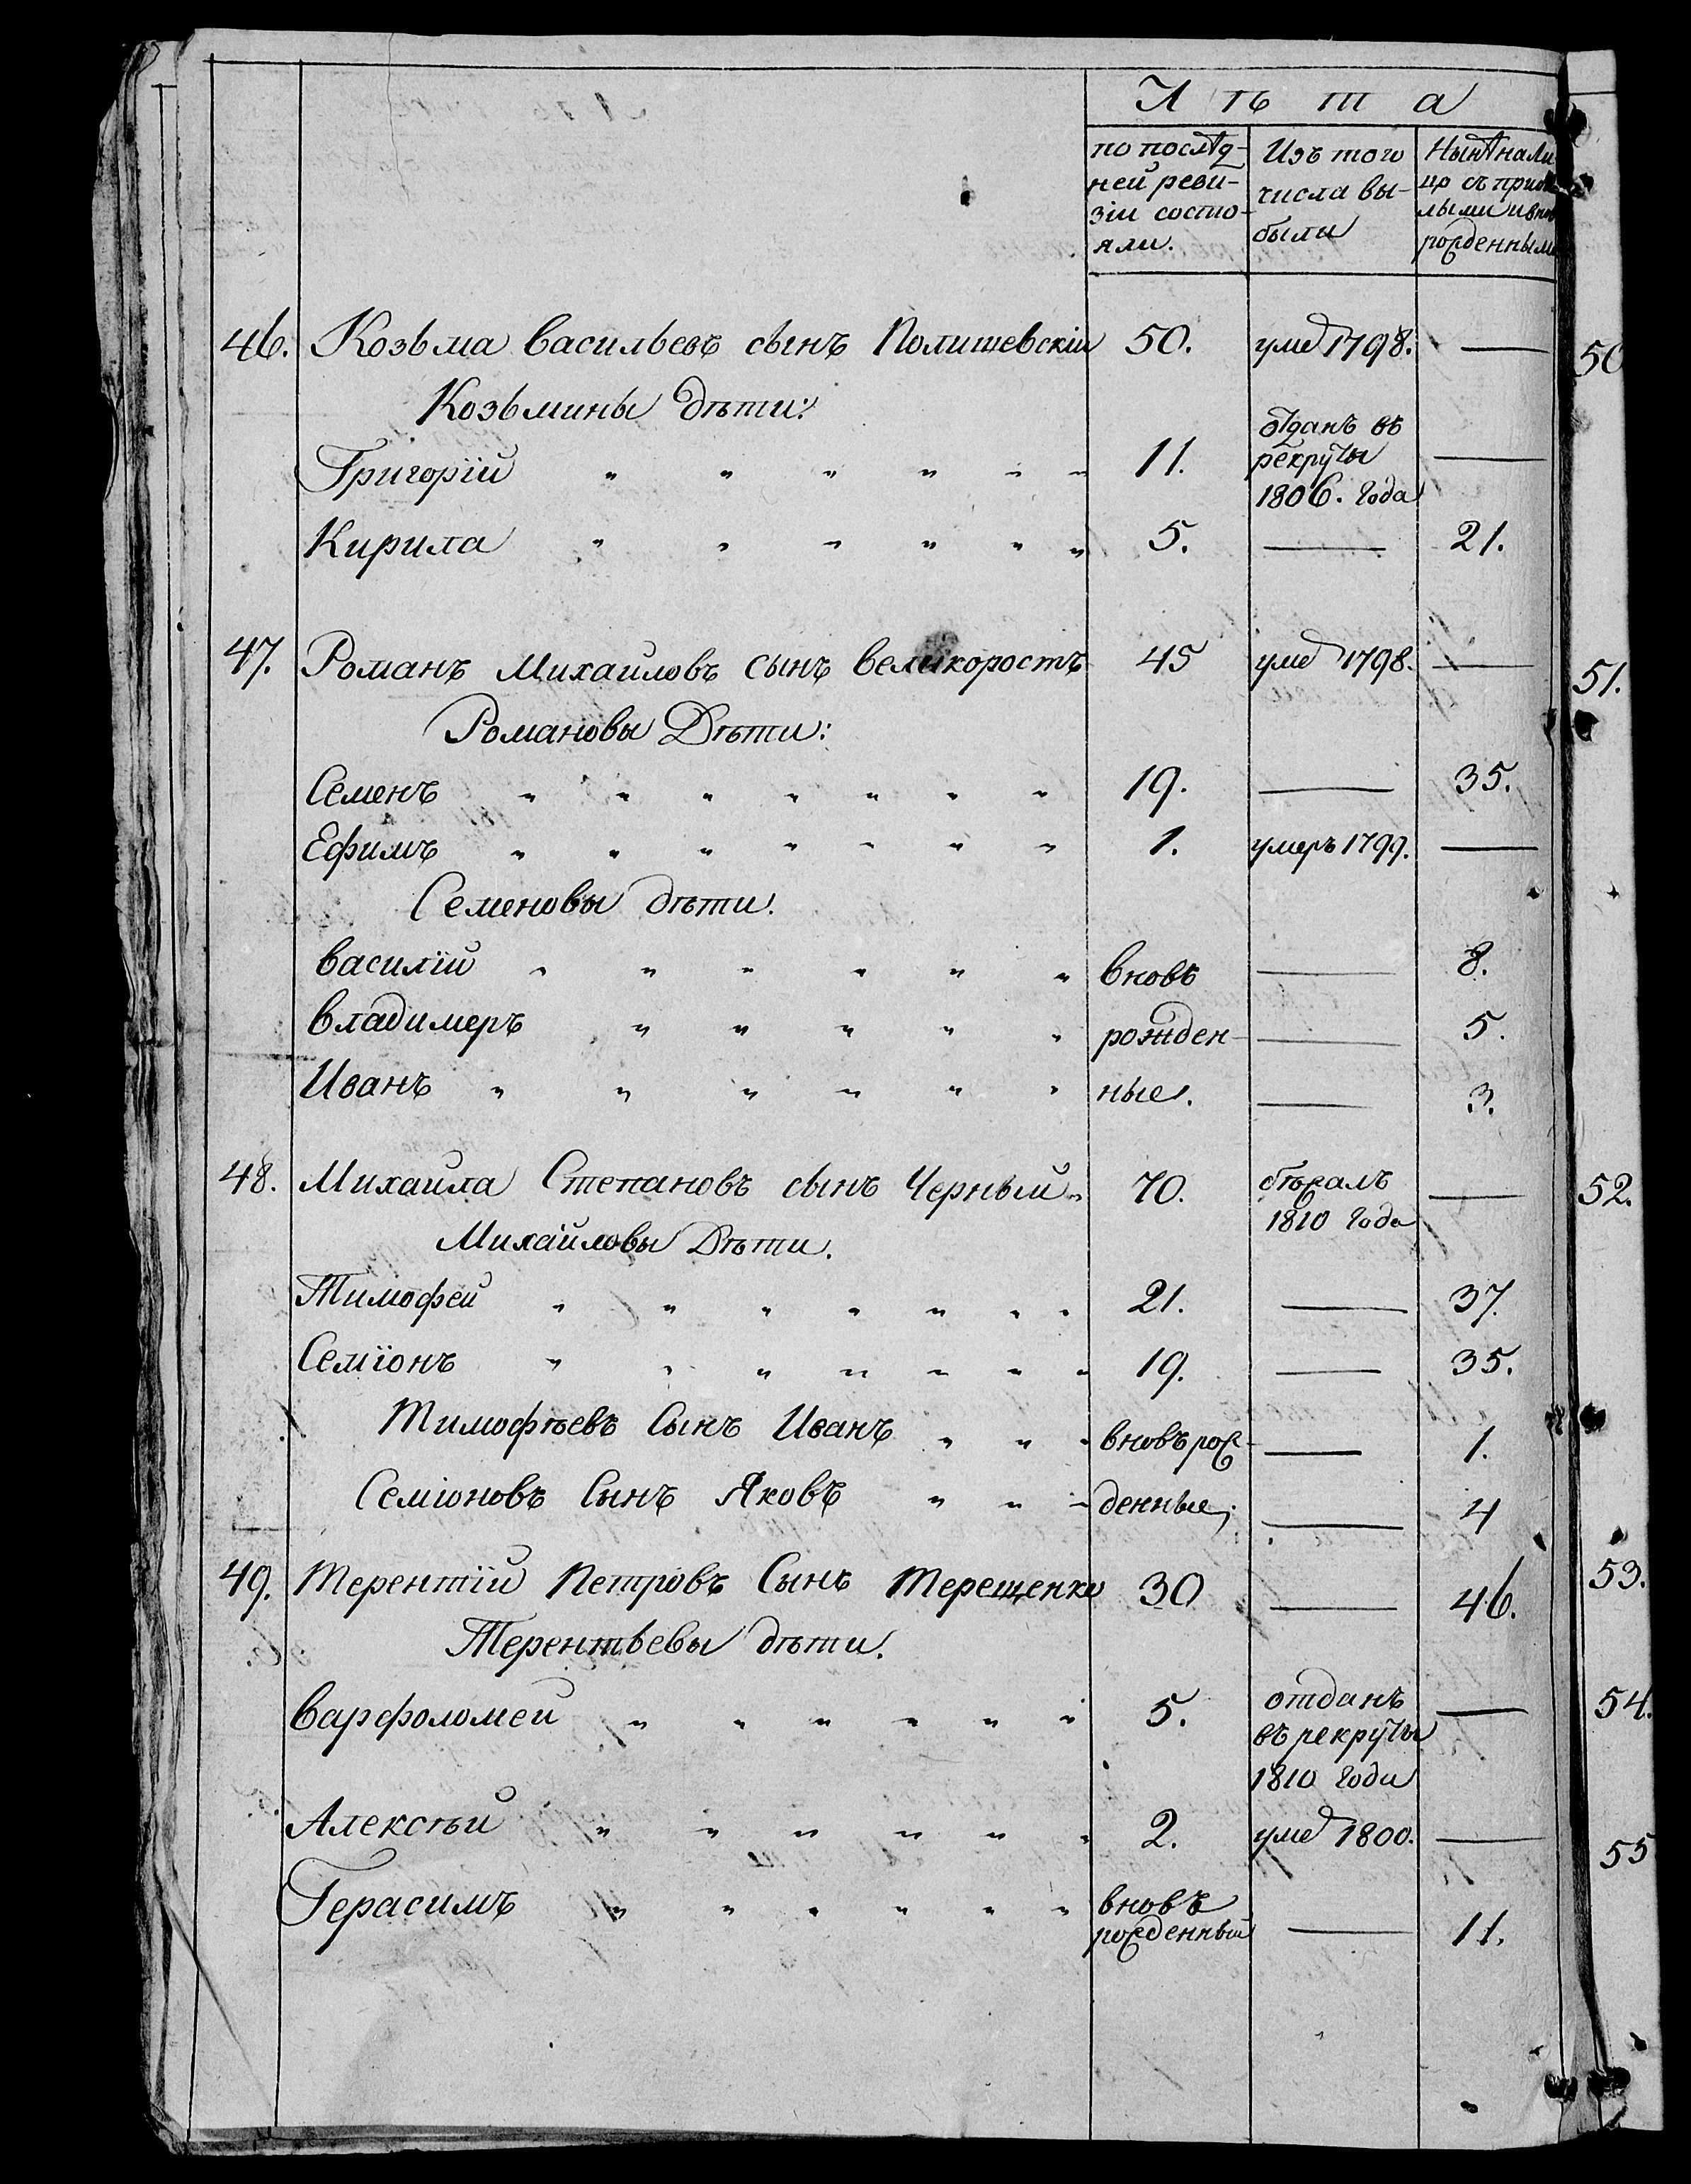 Лѣта
по послѣд-
ней реви-
зіи состо-
яли.
Изъ того
числа вы-
были
Нынѣ нали-
цо съ прибы
лыми и внов
рожденными
46. Козьма Васильевъ сынъ Полишевскій 50. умер 1798. —
Козьмины дѣти:
Григорій " " " " " " 11. отданъ въ рекруты 1806. Года —
Кирила " " " " " " 5. — 21.
47. Романъ Михайловъ сынъ Великоростъ 45 умер 1798. —
Романовы Дѣти:
Семенъ " " " " " " " 19. — 35.
Ефимъ " " " " " " " 1. умеръ 1799. —
Семеновы дѣти.
Василій " " " " " " вновь — 8.
Владимеръ " " " " " рожден- — 5.
Иванъ " " " " " " ные. — 3.
48. Михайла Степановъ сынъ Черный " 70. бѣжалъ 1810 Года —
Михайловы Дѣти.
Тимофей " " " " " " " 21. — 37.
Семіонъ " " " " " " " 19. — 35.
Тимофѣевъ Сынъ Иванъ " " " вновь рож- — 1.
Семіоновъ Сынъ Яковъ " " " денные; — 4
49. Терентій Петровъ Сынъ Терещенко 30 — 46.
Терентьевы дѣти.
Варфоломей " " " " " " 5. отданъ въ рекруты 1810 Года —
Алексѣй " " " " " " 2. умер 1800. —
Герасимъ " " " " " " вновь рожденный — 11.
50
51.
52.
53.
54.
55